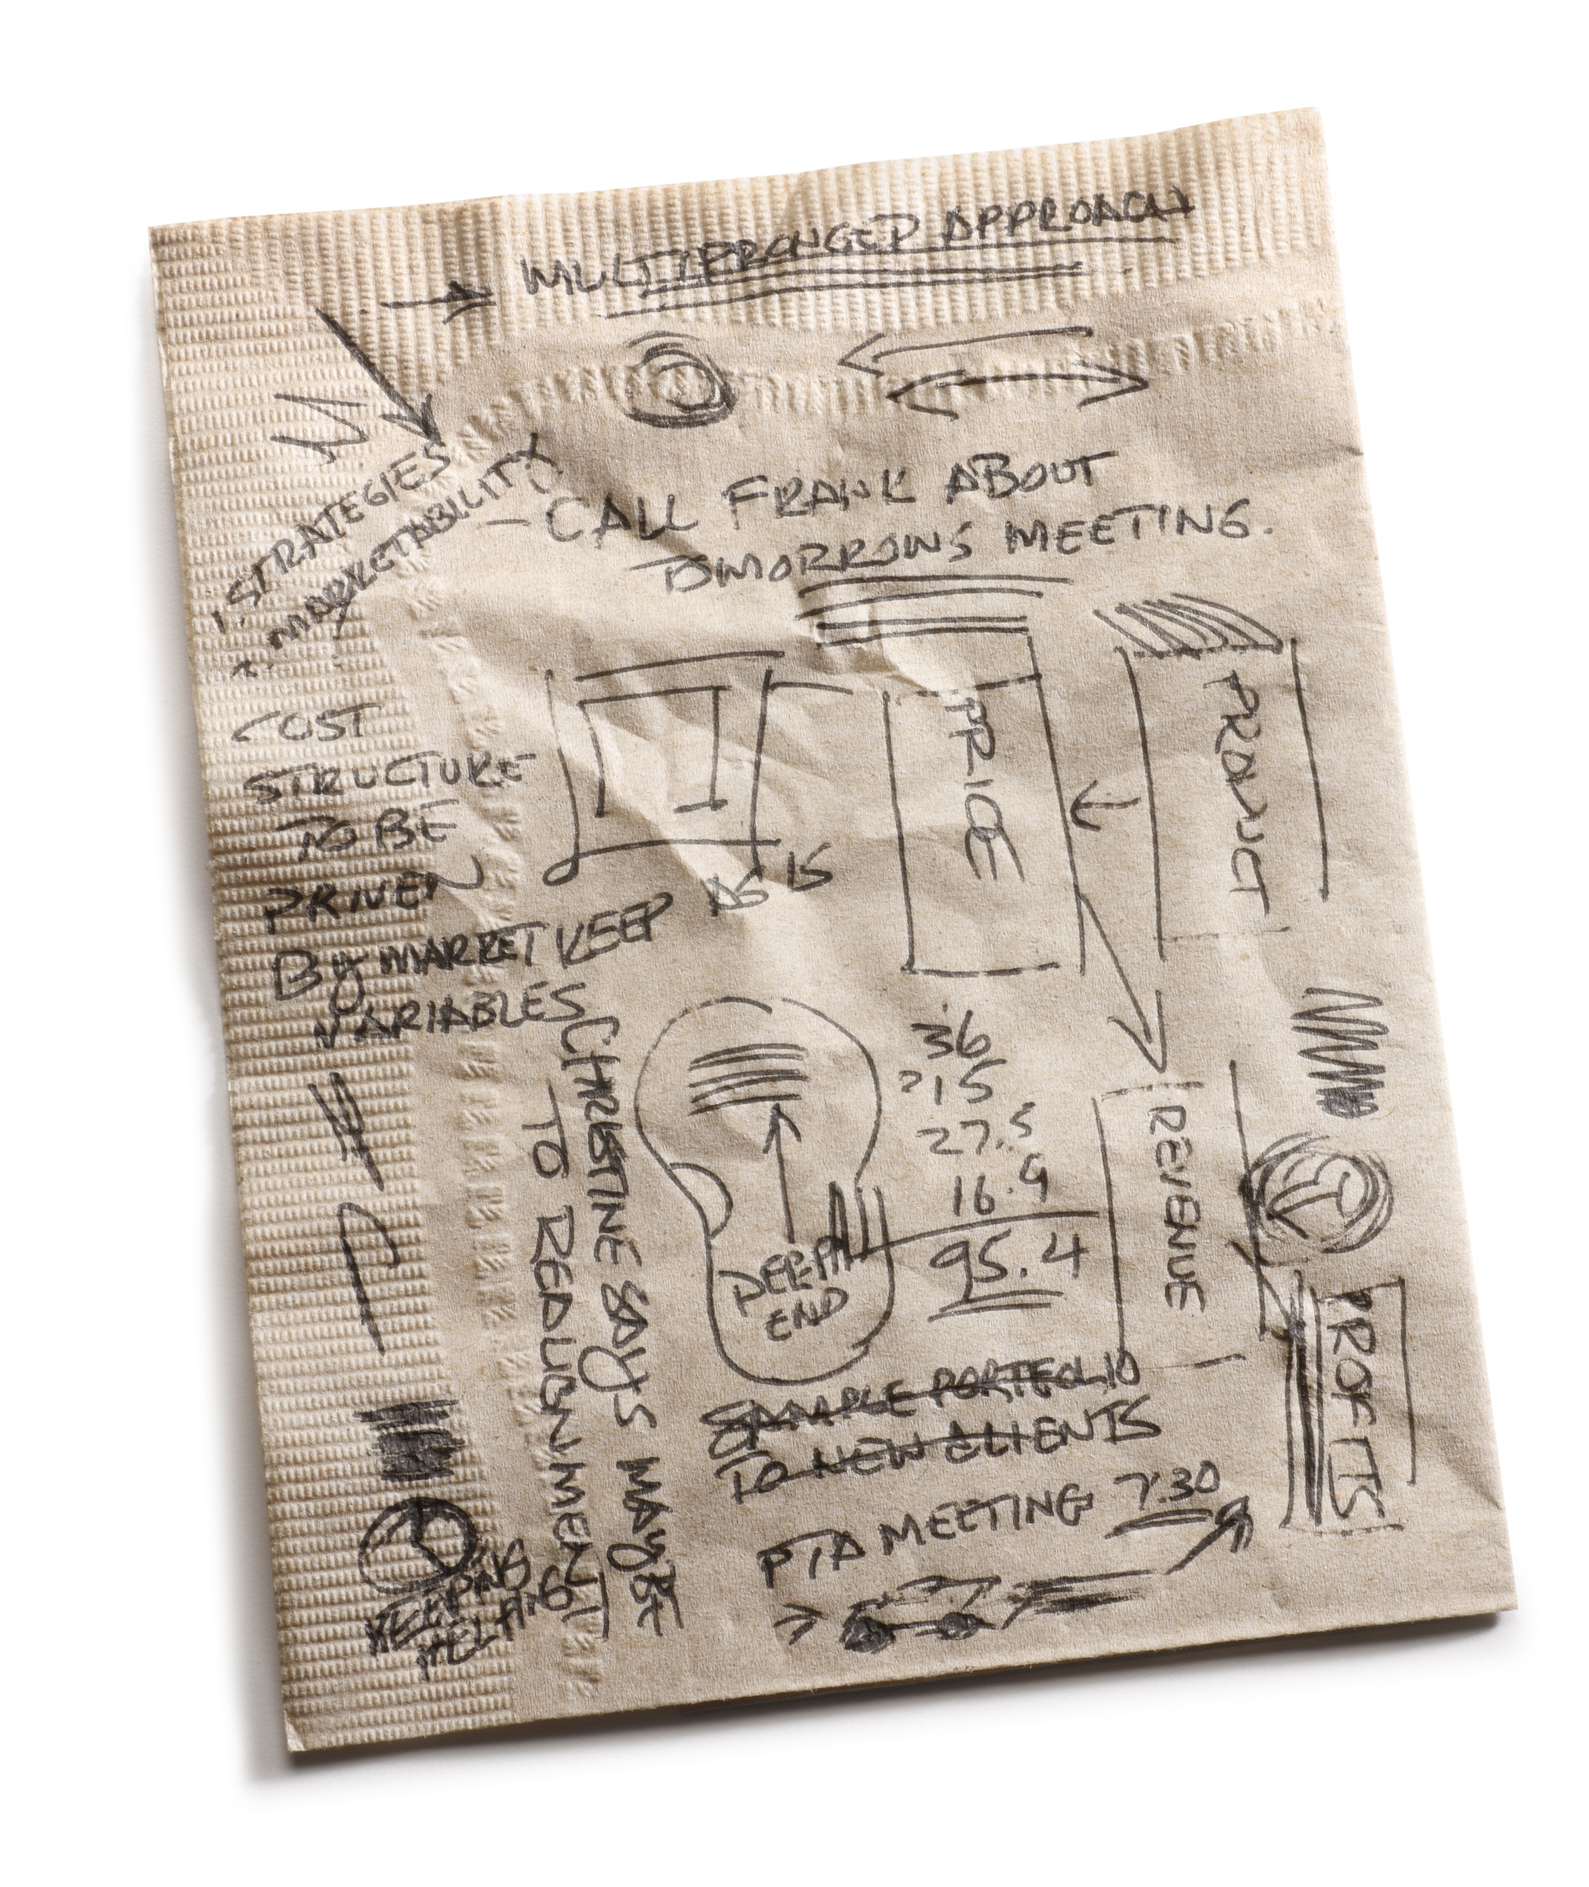 MULTIPRONGED APPROACH
1. STRATEGIES
2. MARKETABILITY
- CALL FRANK ABOUT
TOMORROWS MEETING.
COST
STRUCTURE
TO BE
DRIVEN
By MARKET
VARIABLES
KEEP AS IS
PRICE
PRODUCT
CHRISTINE SAyS MAyBE
TO REALIGNMENT
DEEP
END
36
15
27.5
16.9
95.4
REVENUE
PROFITS
SAMPLE PORTFOLIO
TO NEW CLIENTS
PTA MEETING 7:30